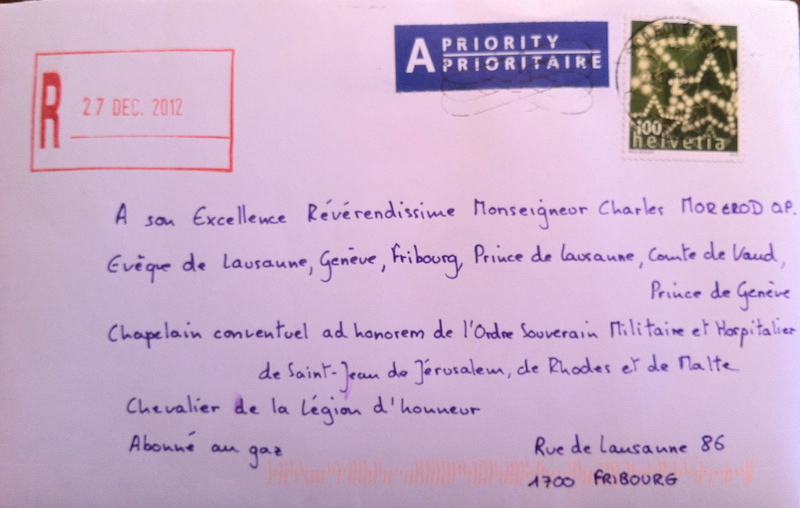 A PRIORITY
PRIORITAIRE
R 27 DEC. 2012
100
helvetia
A son Excellence Révérendissime Monseigneur Charles MOREROD O.P.
Evêque de Lausanne, Genève, Fribourg, Prince de Lausanne, Comte de Vaud,
Prince de Genève
Chapelain conventuel ad honorem de l'Ordre Souverain Militaire et Hospitalier
de Saint-Jean de Jérusalem, de Rhodes et de Malte
Chevalier de la Légion d'honneur
Abonné au gaz
Rue de Lausanne 86
1700 FRIBOURG